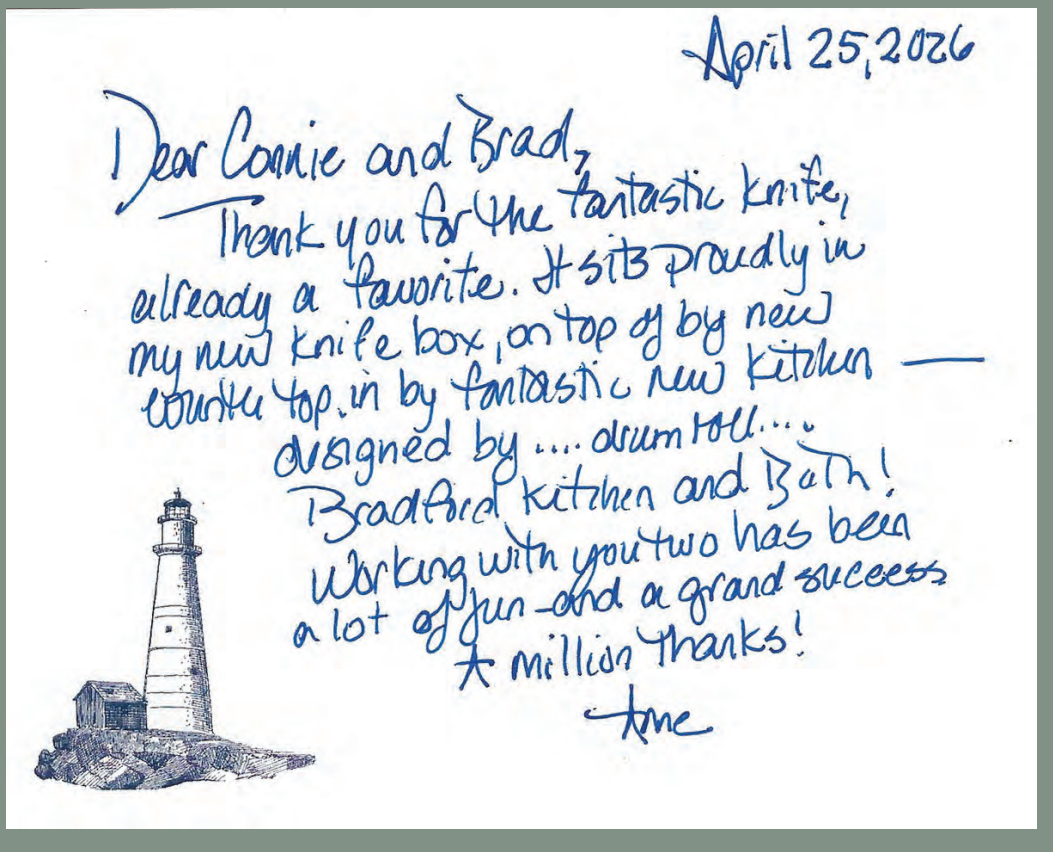 April 25, 2026
Dear Connie and Brad,
Thank you for the fantastic knife,
already a favorite. It sits proudly in
my new knife box, on top of by new
counter top. in by fantastic new kitchen —
designed by .... drum roll ....
Bradford Kitchen and Bath!
Working with you two has been
a lot of fun - and a grand success
A million thanks!